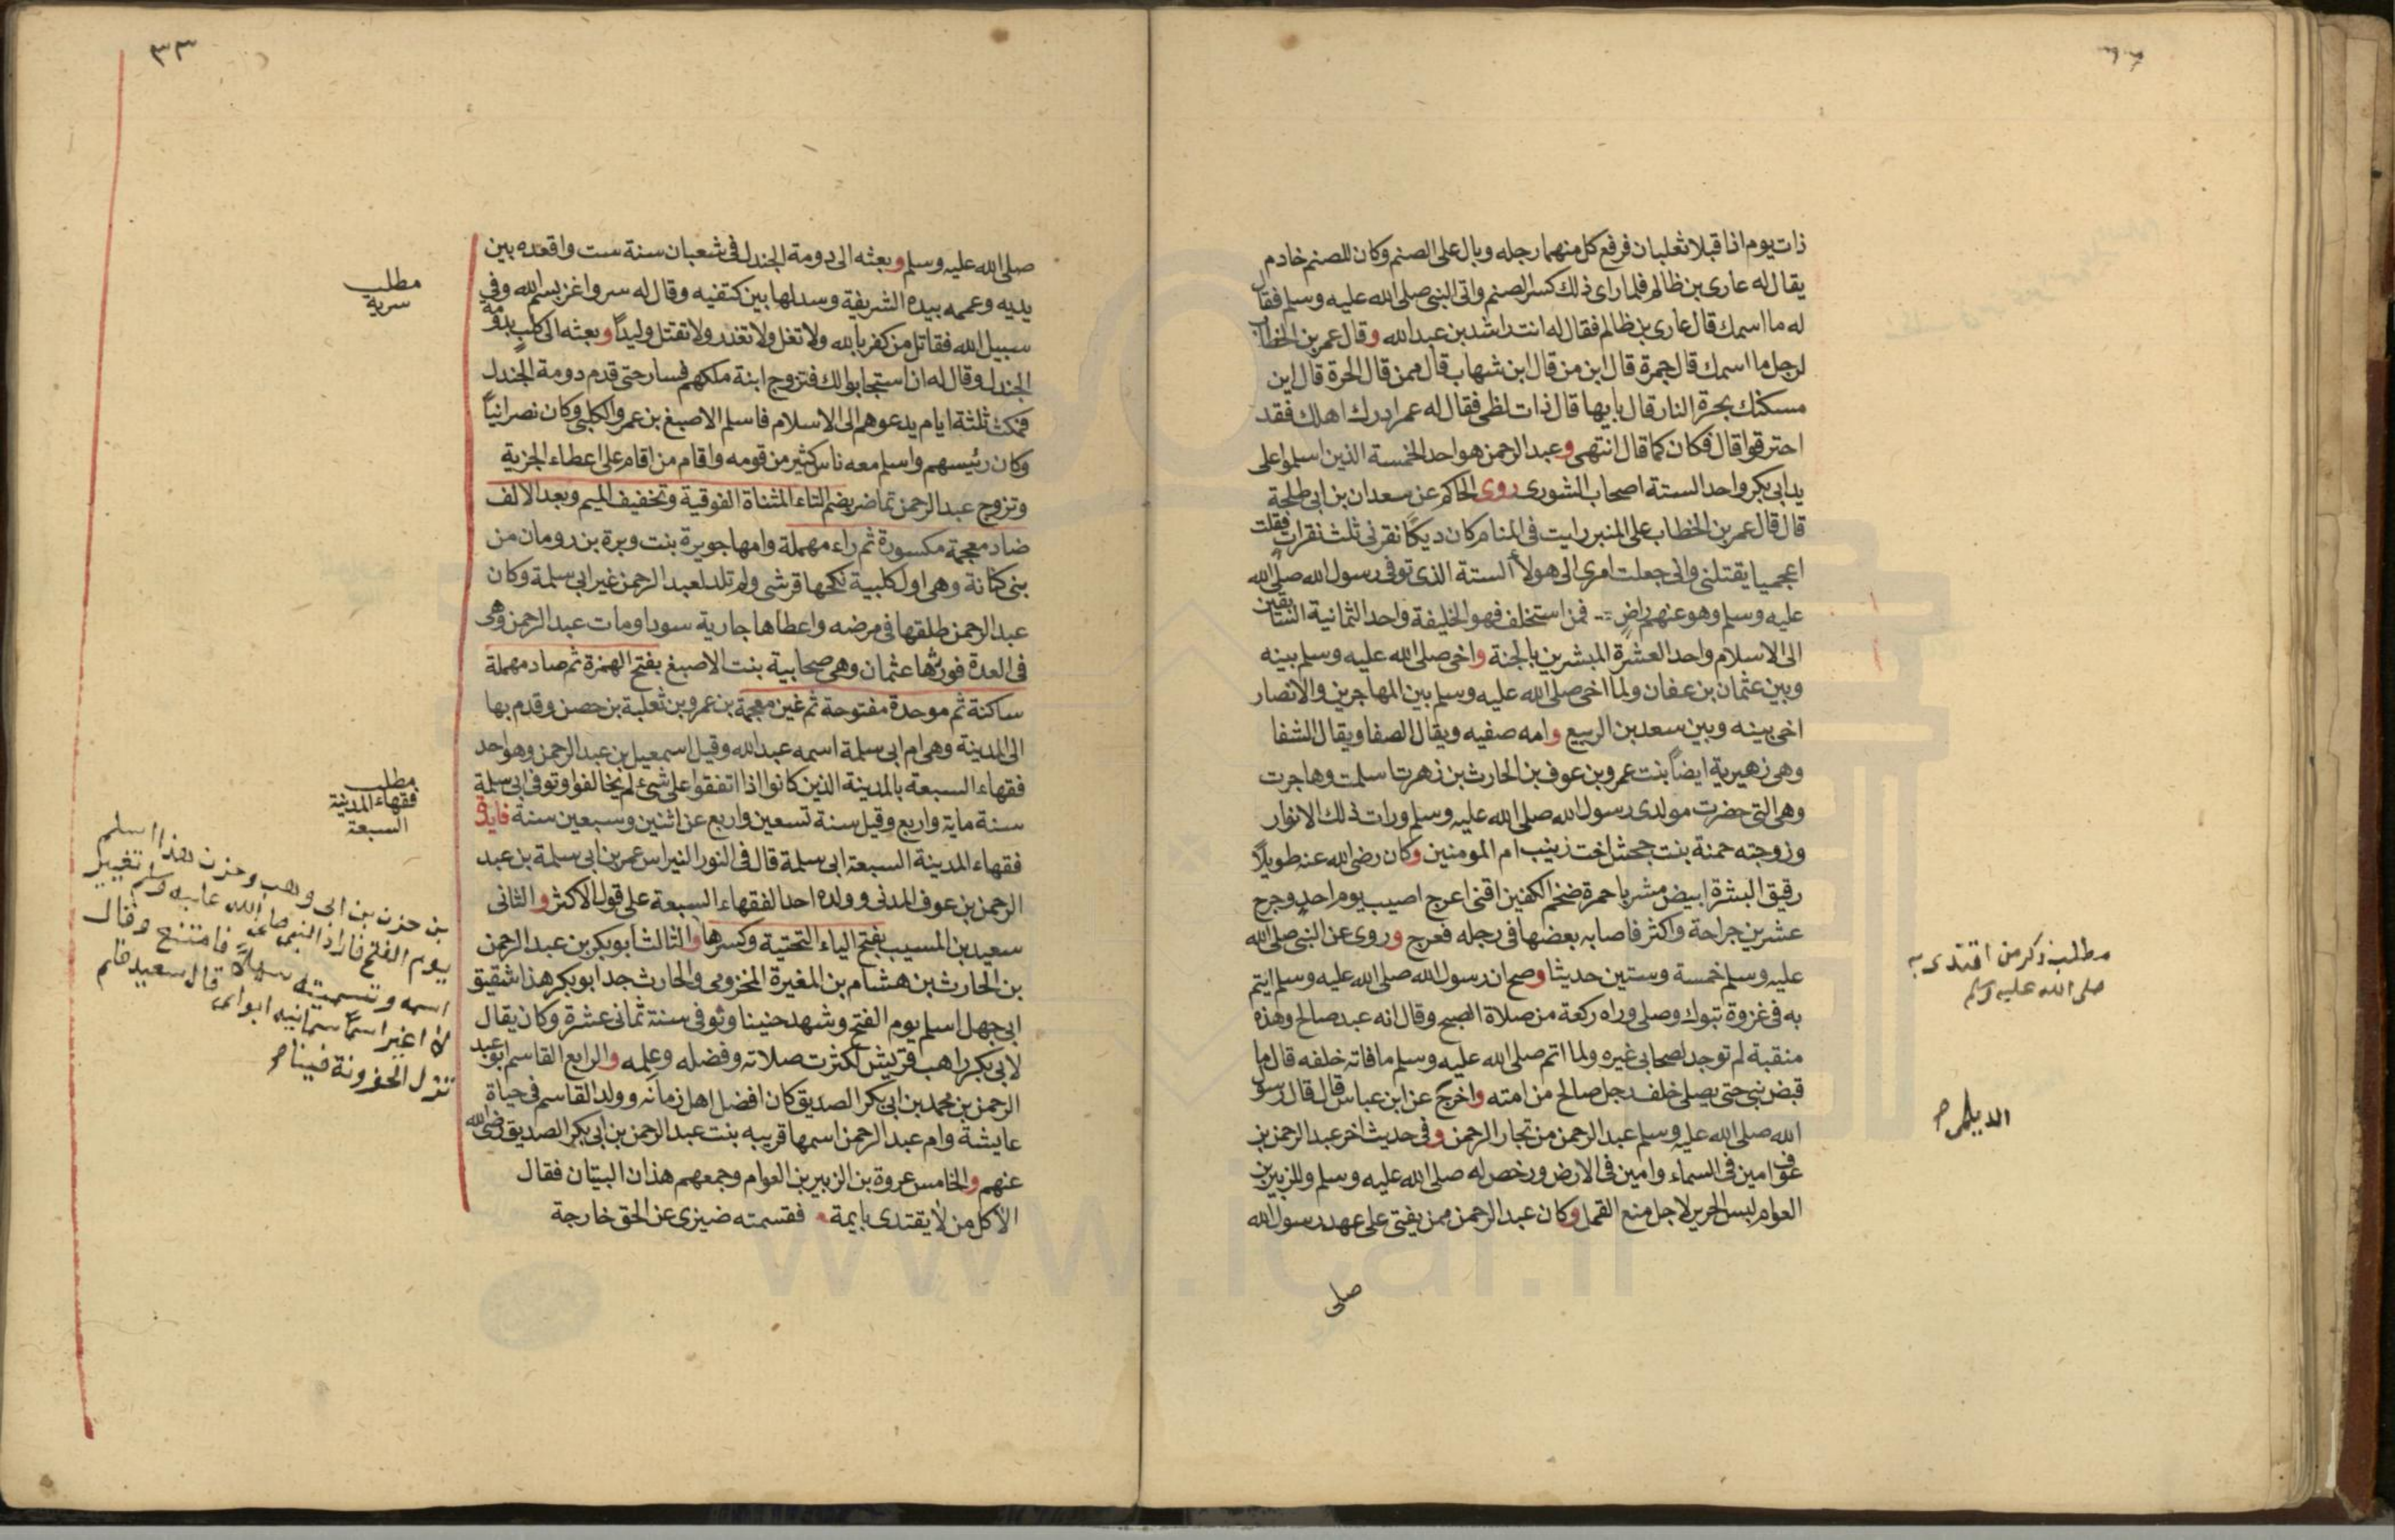 ذات يوم اذا قبلا ثعلبان فرفع كل منهما رجله وبال على الصنم وكان للصنم خادم
يقال له عارى بن ظالم فلما راى ذلك كسر الصنم واتى النبى صلى الله عليه وسلم فقال
له ما اسمك قال عارى بن ظالم فقال له انت راشد بن عبد الله وقال عمر بن الخطاب
لرجل ما اسمك قال جمرة قال ابن من قال ابن شهاب قال ممن قال الحرة قال اين
مسكنك بحرة النار قال بايها قال ذات لظى فقال له عمر ادرك اهلك فقد
احترقوا قال فكان كما قال انتهى وعبد الرحمن هو احد الخمسة الذين اسلموا على
يد ابى بكر واحد الستة اصحاب الشورى روى الحاكم عن سعدان بن ابى طلحة
قال قال عمر بن الخطاب على المنبر رايت فى المنام كان ديكا نقرنى ثلث نقرات فقلت
اعجميا يقتلنى وانى جعلت امرى الى هولأ الستة الذى توفى رسول الله صلى الله
عليه وسلم وهو عنهم راض فمن استخلف فهو الخليفة واحد الثمانية السابقين
الى الاسلام واحد العشرة المبشرين بالجنة واخى صلى الله عليه وسلم بينه
وبين عثمان بن عفان ولما اخى صلى الله عليه وسلم بين المهاجرين والانصار
اخى بينه وبين سعد بن الربيع وامه صفيه ويقال الصفا ويقال الشفا
وهى زهيرية ايضاً بنت عمرو بن عوف بن الحارث بن زهرت اسلمت وهاجرت
وهى التى حضرت مولدى رسول الله صلى الله عليه وسلم ورات ذلك الانوار
وزوجته حمنة بنت جحش اخت زينب ام المومنين وكان رضى الله عنه طويلاً
رقيق البشرة ابيض مشربا حمرة ضخم الكفين اقنى اعرج اصيب يوم احد وجرح
عشرين جراحة واكثر فاصابه بعضها فى رجله فعرج وروى عن النبى صلى الله
عليه وسلم خمسة وستين حديثا وصح ان رسول الله صلى الله عليه وسلم ائتم
به فى غزوة تبوك وصلى وراه ركعة من صلاة الصبح وقال انه عبد صالح وهذه
منقبة لم توجد لصحابى غيره ولما اتم صلى الله عليه وسلم ما فاته خلفه قال ما
قبض نبى حتى يصلى خلف رجل صالح من امته واخرج عن ابن عباس قال قال رسول
الله صلى الله عليه وسلم عبد الرحمن من تجار الرحمن وفى حديث اخر عبد الرحمن بن
عوف امين فى السماء وامين فى الارض ورخص له صلى الله عليه وسلم وللزبير بن
العوام لبس الحرير لاجل منع القمل وكان عبد الرحمن ممن يفتى على عهد رسول الله
صلى
مطلب ذكر من اقتدى به
صلى الله عليه وسلم
الديلمى
٣٣
صلى الله عليه وسلم وبعثه الى دومة الجندل فى شعبان سنة ست واقعده بين
يديه وعممه بيده الشريفة وسدلها بين كتفيه وقال له سر واغز بسم الله وفى
سبيل الله فقاتل من كفر بالله ولا تغل ولا تغدر ولا تقتل وليداً وبعثه الى كلب بدومة
الجندل وقال له ان استجابوا لك فتزوج ابنة ملكهم فسار حتى قدم دومة الجندل
فمكث ثلثة ايام يدعوهم الى الاسلام فاسلم الاصبغ بن عمرو الكلبى وكان نصرانياً
وكان رئيسهم واسلم معه ناس كثير من قومه واقام من اقام على اعطاء الجزية
وتزوج عبد الرحمن تماضر بضم التاء المثناة الفوقية وتخفيف الميم وبعد الالف
ضاد معجمة مكسورة ثم راء مهملة وامها جويرة بنت وبرة بن رومان من
بنى كنانة وهى اول كلبية نكحها قرشى ولم تلد لعبد الرحمن غير ابى سلمة وكان
عبد الرحمن طلقها فى مرضه واعطاها جارية سودا ومات عبد الرحمن وهى
فى العدة فورثها عثمان وهى صحابية بنت الاصبغ بفتح الهمزة ثم صاد مهملة
ساكنة ثم موحدة مفتوحة ثم غين معجمة بن عمرو بن ثعلبة بن حصن وقدم بها
الى المدينة وهى ام ابى سلمة اسمه عبد الله وقيل اسمعيل بن عبد الرحمن وهو احد
فقهاء السبعة بالمدينة الذين كانوا اذا اتفقوا على شئ لم يخالفوا وتوفى ابى سلمة
سنة ماية واربع وقيل سنة تسعين واربع عن اثنين وسبعين سنة فايدة
فقهاء المدينة السبعة ابى سلمة قال فى النور النبراس عمر بن ابى سلمة بن عبد
الرحمن بن عوف المدنى وولده احد الفقهاء السبعة على قول الاكثر والثانى
سعيد بن المسيب بفتح الياء التحتية وكسرها والثالث ابو بكر بن عبد الرحمن
بن الحارث بن هشام بن المغيرة المخزومى والحارث جد ابو بكر هذا شقيق
ابى جهل اسلم يوم الفتح وشهد حنينا وتوفى سنة ثمانى عشرة وكان يقال
لابى بكر راهب قريش لكثرت صلاته وفضله وعلمه والرابع القاسم ابو عبد
الرحمن بن محمد بن ابى بكر الصديق كان افضل اهل زمانه وولد القاسم فى حياة
عايشة وام عبد الرحمن اسمها قريبه بنت عبد الرحمن بن ابى بكر الصديق رضى الله
عنهم والخامس عروة بن الزبير بن العوام وجمعهم هذان البيتان فقال
الا كل من لا يقتدى بايمة فقسمته ضيزى عن الحق خارجة
مطلب
سرية
مطلب
فقهاء المدينة
السبعة
بن حزن بن ابى وهب وحزن هذا اسلم
يوم الفتح فاراد النبى صلى الله عليه وسلم تغيير
اسمه وتسميته سهلا فامتنع وقال
لا اغير اسما سمانيه ابواى قال سعيد فلم
تزل الحزونة فينا
www.icar.ir